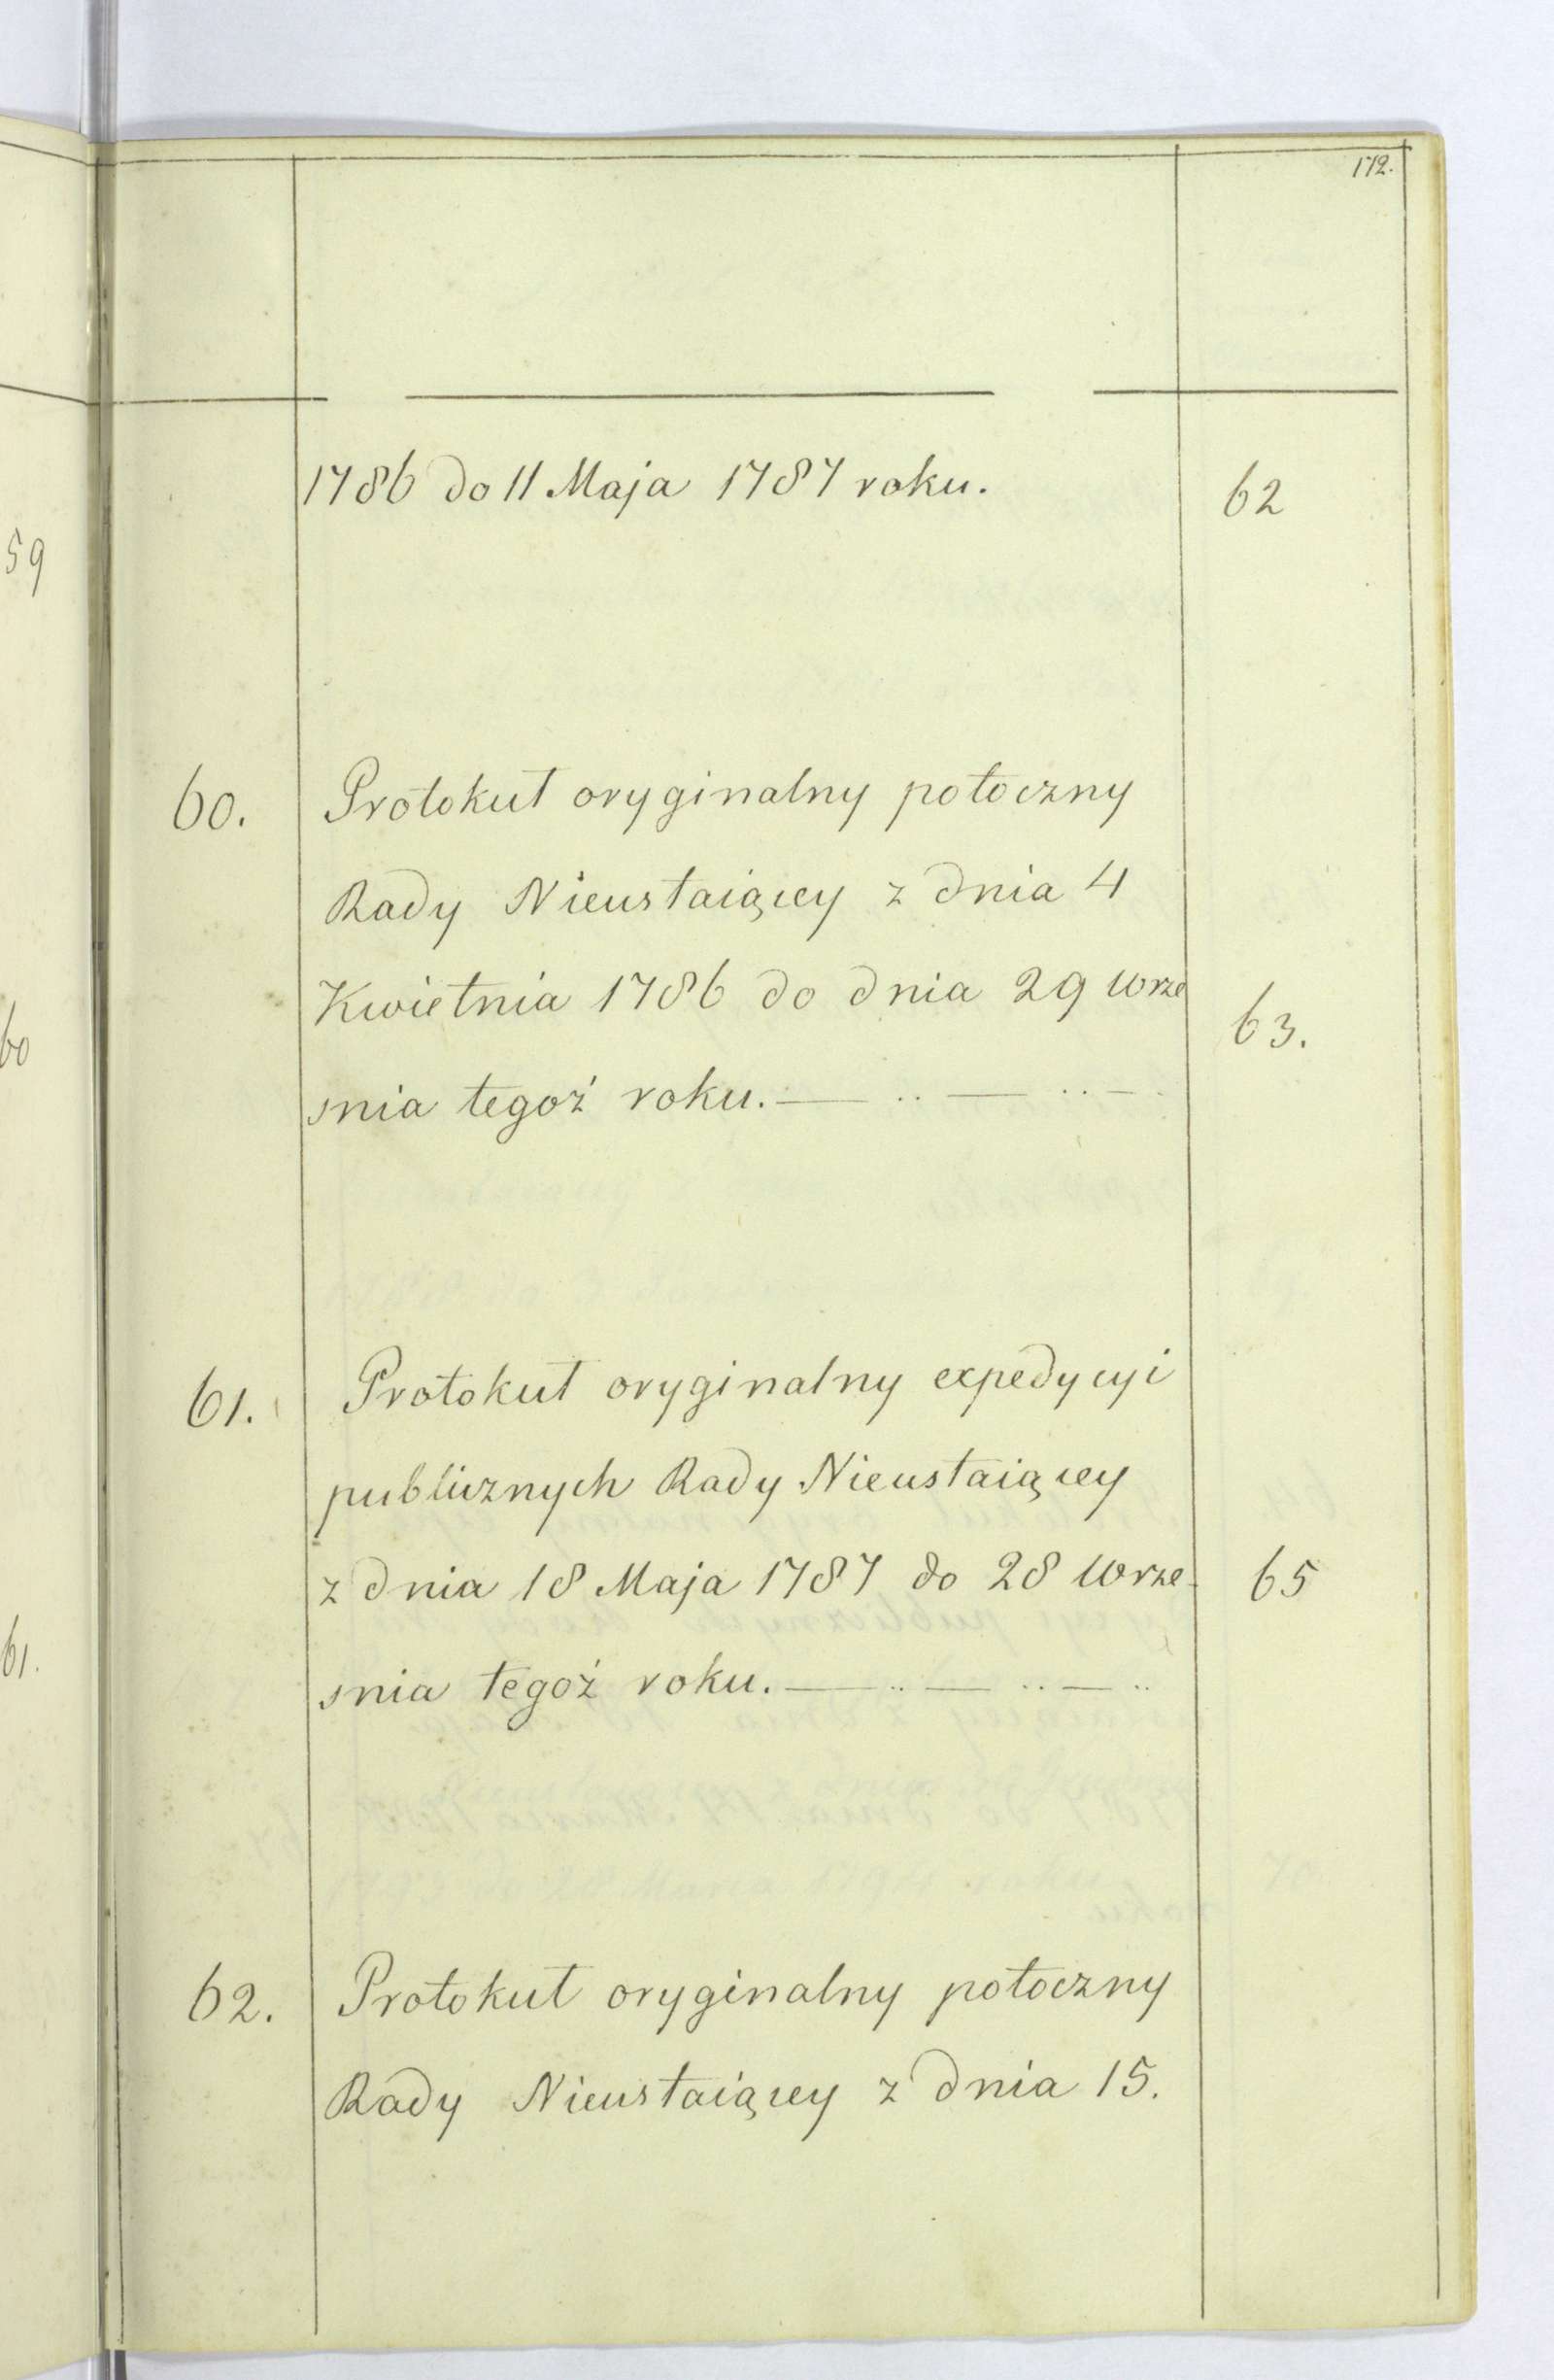 172.
1786 do 11 Maja 1787 roku. 62
59
60. Protokuł oryginalny potoczny
Rady Nieustaiącey z dnia 4
Kwietnia 1786 do dnia 29 Wrze
60
63.
snia tegoż roku. — .. — .. —
61. Protokuł oryginalny expedycyi
publicznych Rady Nieustaiącey
z dnia 18 Maja 1787 do 28 Wrze- 65
61.
snia tegoż roku. — .. — .. — ..
62. Protokuł oryginalny potoczny
Rady Nieustaiącey z dnia 15.